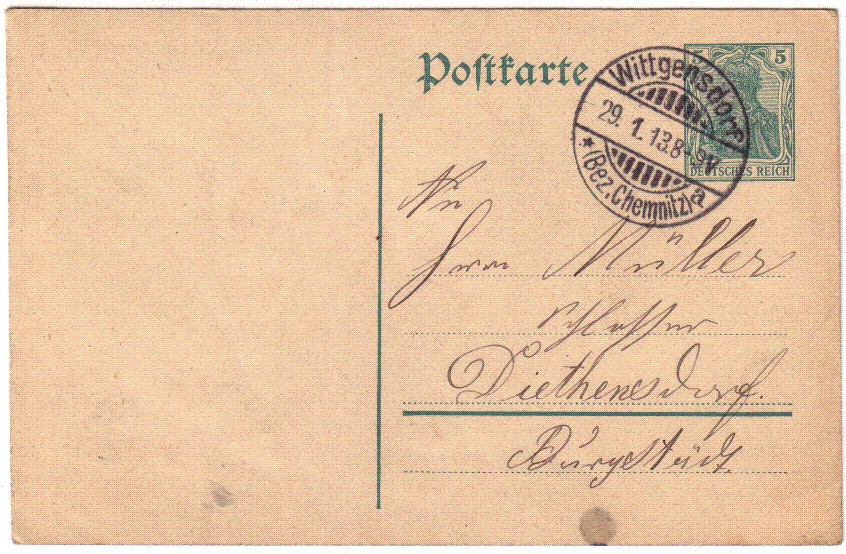 Postkarte
5 5
DEUTSCHES REICH
Wittgensdorf
29. 1. 13. 8-9V
* (Bez. Chemnitz) a
An
Herrn Müller
Schlosser
Diethensdorf.
Burgstädt.